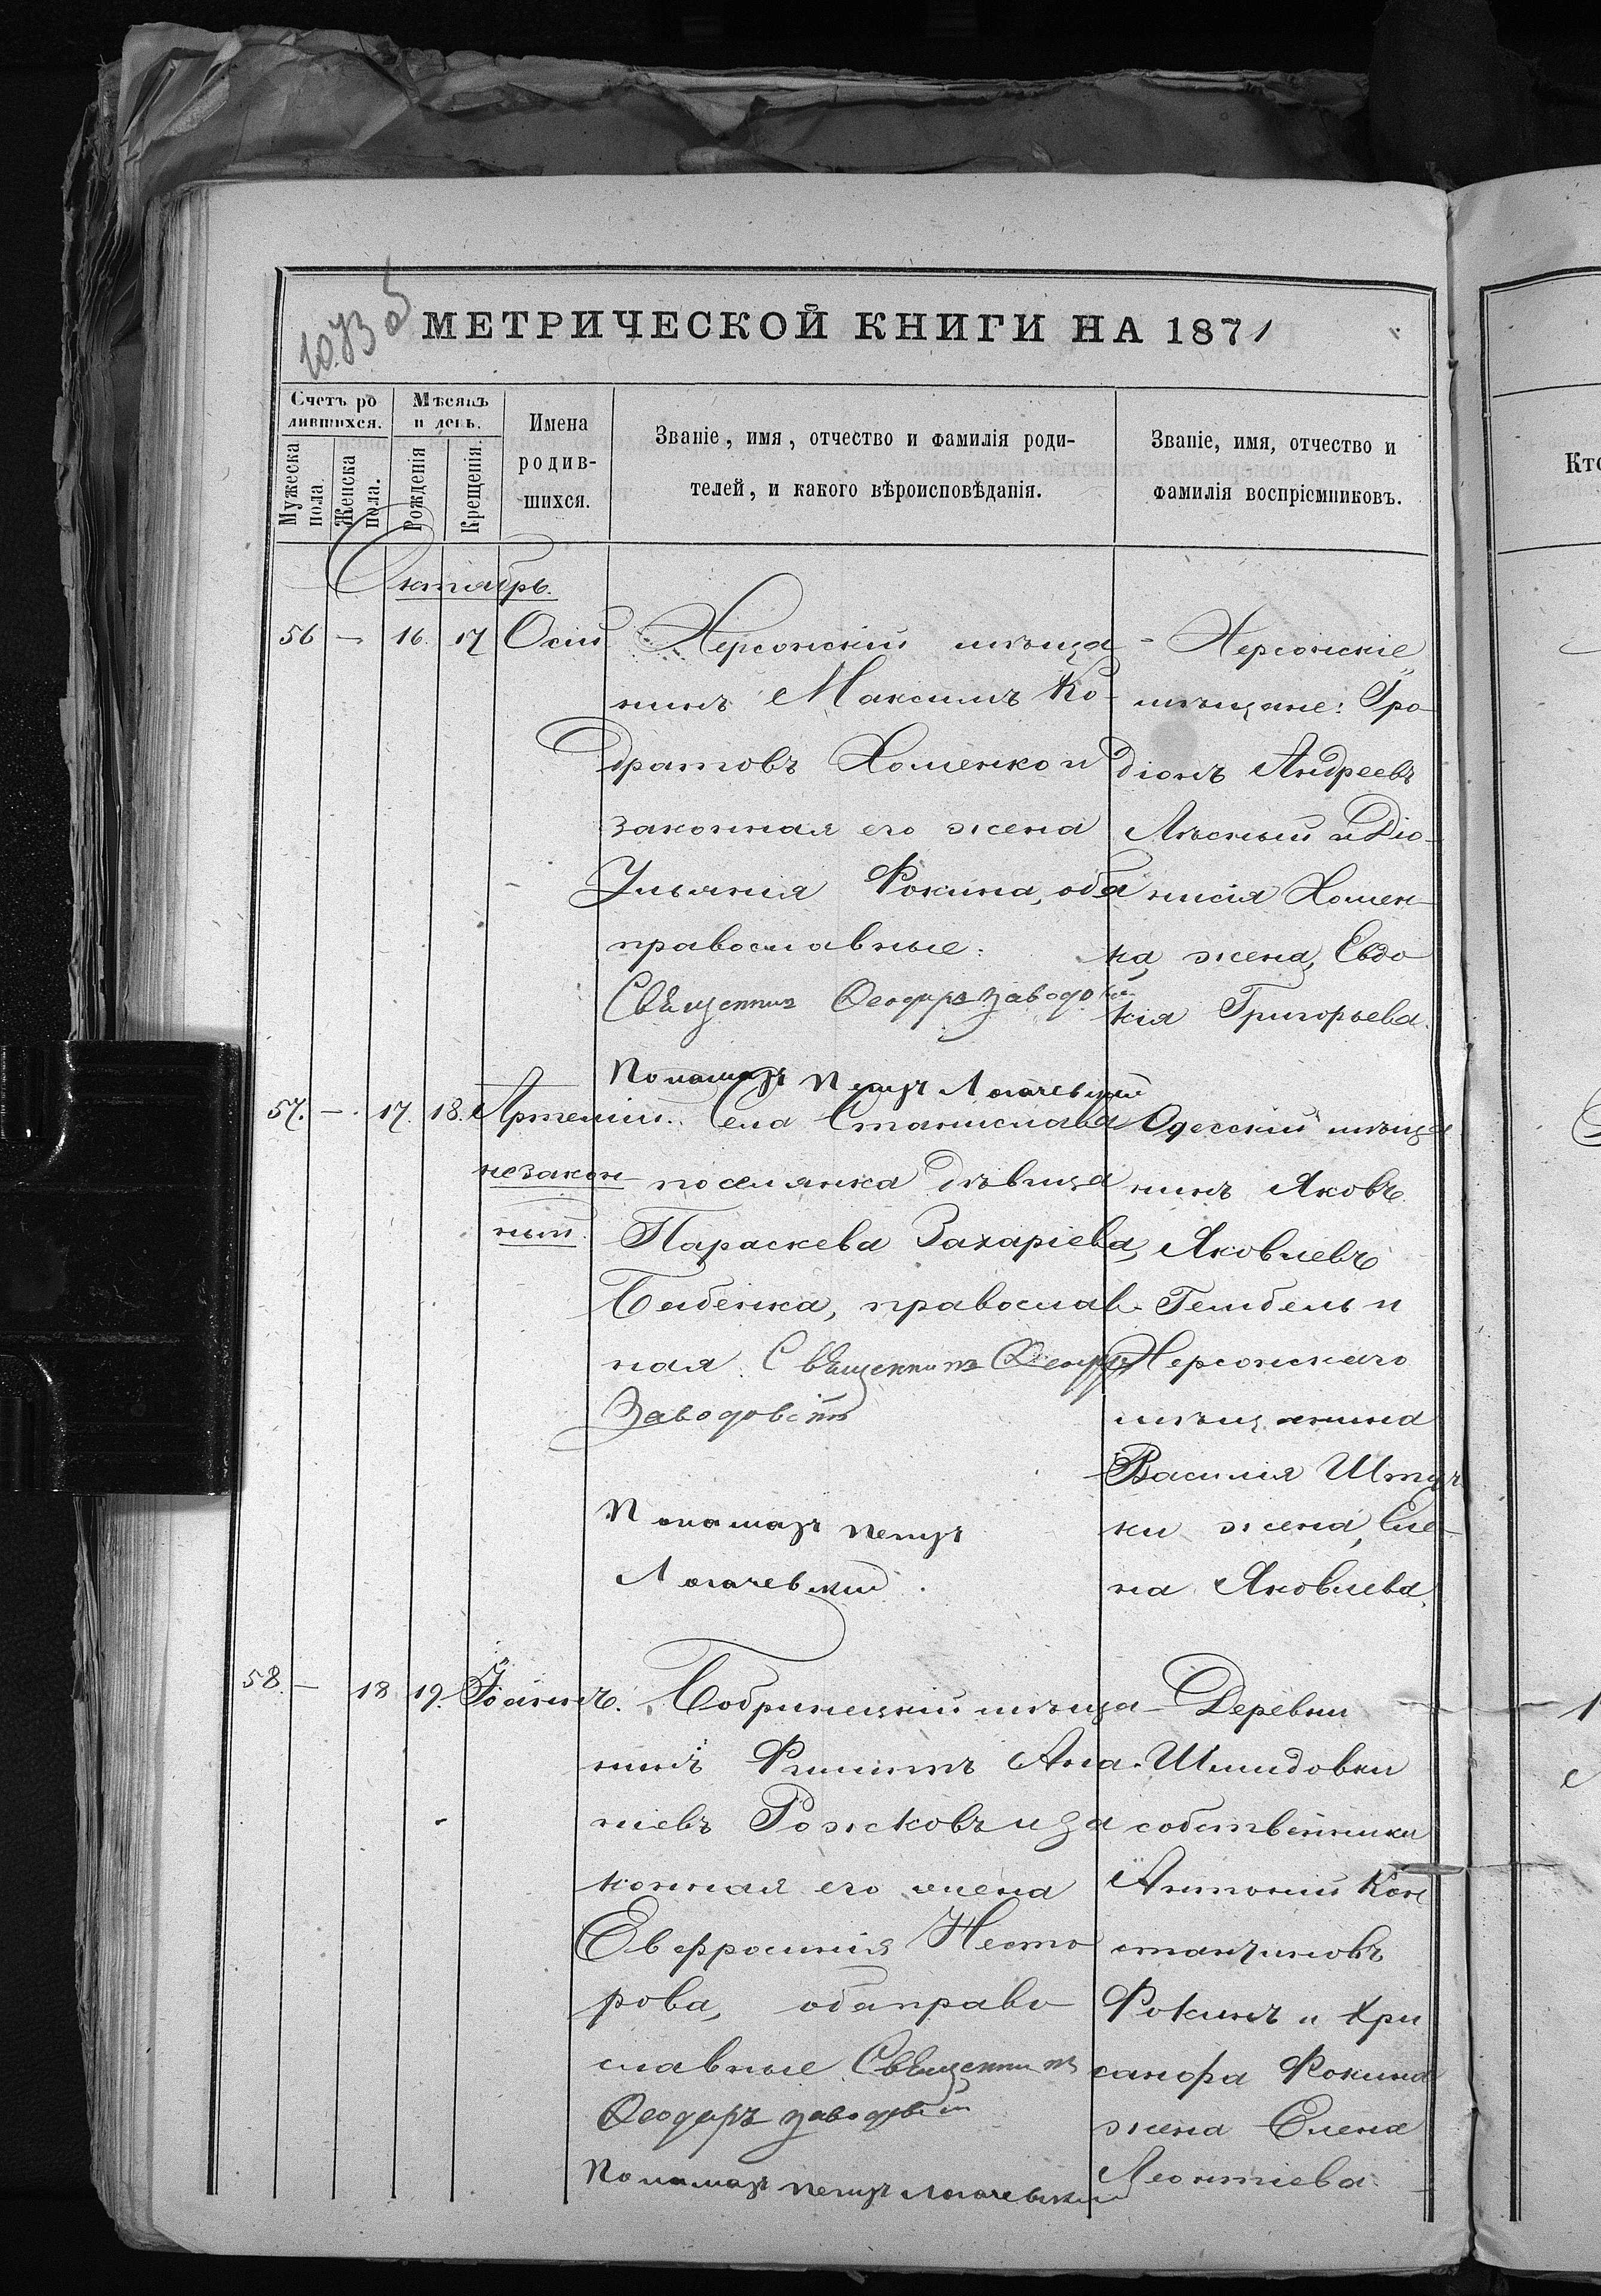 МЕТРИЧЕСКОЙ КНИГИ НА 1871
Счетъ ро
дившихся.
Мужеска
пола.
Женска
пола.
Мѣсяцъ
и день.
Рожденія
Крещенія.
Имена
родив-
шихся.
Званіе, имя, отчество и фамилія роди-
телей, и какого вѣроисповѣданія.
Званіе, имя, отчество и
фамилія воспріемниковъ.
Кто
Октябрь.
56 — 16. 17 Осій
Херсонскій мѣща
нинъ Максимъ Ко-
дратовъ Хоменко и
законная его жена
Ульянія Фокина, оба
православные.
Священникъ Ѳеодоръ Заводовскій
Пономарь Петръ Логачевскій
Херсонскіе
мѣщане: Іро-
діонъ Андреевъ
Лѣсный и Діо-
нисія Хомен-
ка жена, Евдо
кія Григорьева.
57. — 17. 18. Артемій.
незакон-
ный.
Села Станислава
поселянка дѣвица
Параскева Захаріева
православ-
ная. Священникъ Ѳеодоръ
Заводовскій
Пономарь Петръ
Логачевскій.
Одесскій мѣща
нинъ Яковъ
Яковлевъ
Гембель и
Херсонскаго
мѣщанина
Василія
жена, Еле-
на Яковлева.
58. — 18 19. Іоаннъ.
Бобринецкій мѣща-
нинъ Филиппъ Ана-
ніевъ Рожковъ и за
конная его жена
Евфросинія Несто
рова, оба право
славные. Священникъ
Ѳеодоръ Заводовскій
Пономарь Петръ Логачевскій
Деревни
Шмидовки
собственники
Антоній Кон
стантиновъ
Фокинъ и Хри
санфа Фокина
жена Елена
Леонтіева.